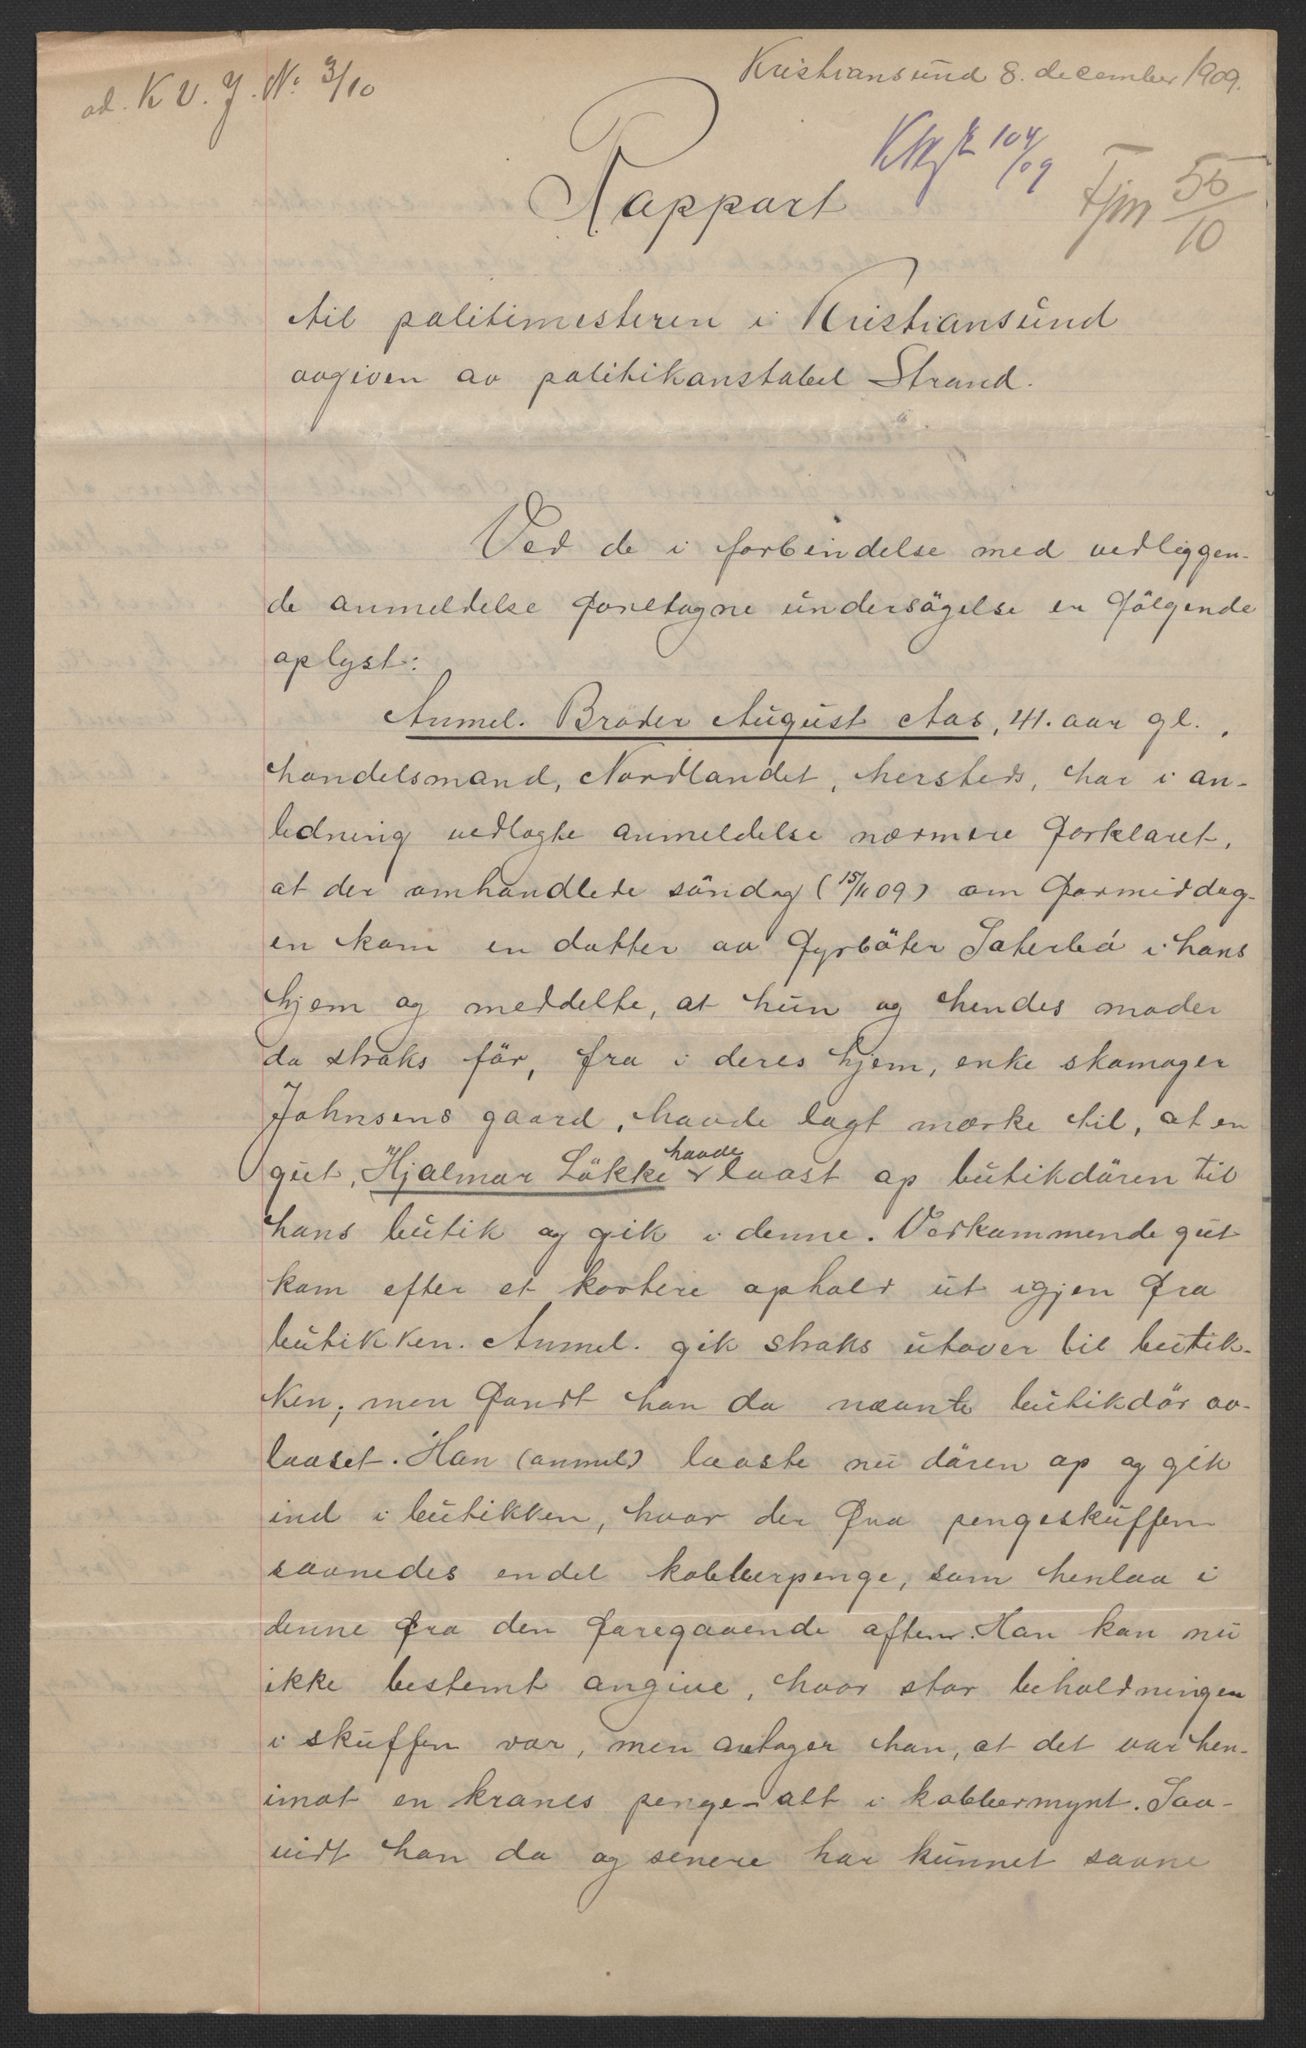 ad. K V. J. No 3/10
Kristiansund 8. december 1909.
104/09
Fjm 55/10
Rapport
til politimesteren i Kristiansund
avgiven av politikonstabel Strand.
Ved de i forbindelse med vedliggen-
de anmeldelse foretagne undersögelse er fölgende
oplyst:
Anmel. Broder August Aas, 41. aar gl.,
handelsmand, Nordlandet, hersteds, har i an-
ledning vedlagte anmeldelse nærmere forklaret,
at der omhandlede söndag (15/11 09) om formiddag-
en kom en datter av fyrböter Saterbö i hans
hjem og meddelte, at hun og hendes moder
da straks för, fra i deres hjem, enke skomager
Johnsens gaard, havde lagt mærke til, at en
gut, Hjalmar Lökke havde laast op butikdören til
hans butik og gik i denne. Vedkommende gut
kom efter et kortere ophold ut igjen fra
butikken. Anmel. gik straks utover til butik-
ken; men fandt han da nævnte butikdör av-
laaset. Han (anmel) laaste nu dören op og gik
ind i butikken, hvor der fra pengeskuffen
savnedes endel kobberpenge, som henlaa i
denne fra den foregaaende aften. Han kan nu
ikke bestemt angive, hvor stor beholdningen
i skuffen var, men antager han, at det var hen-
imot en krones penge - alt i kobbermynt. Saa-
vidt han da og senere har kunnet savne